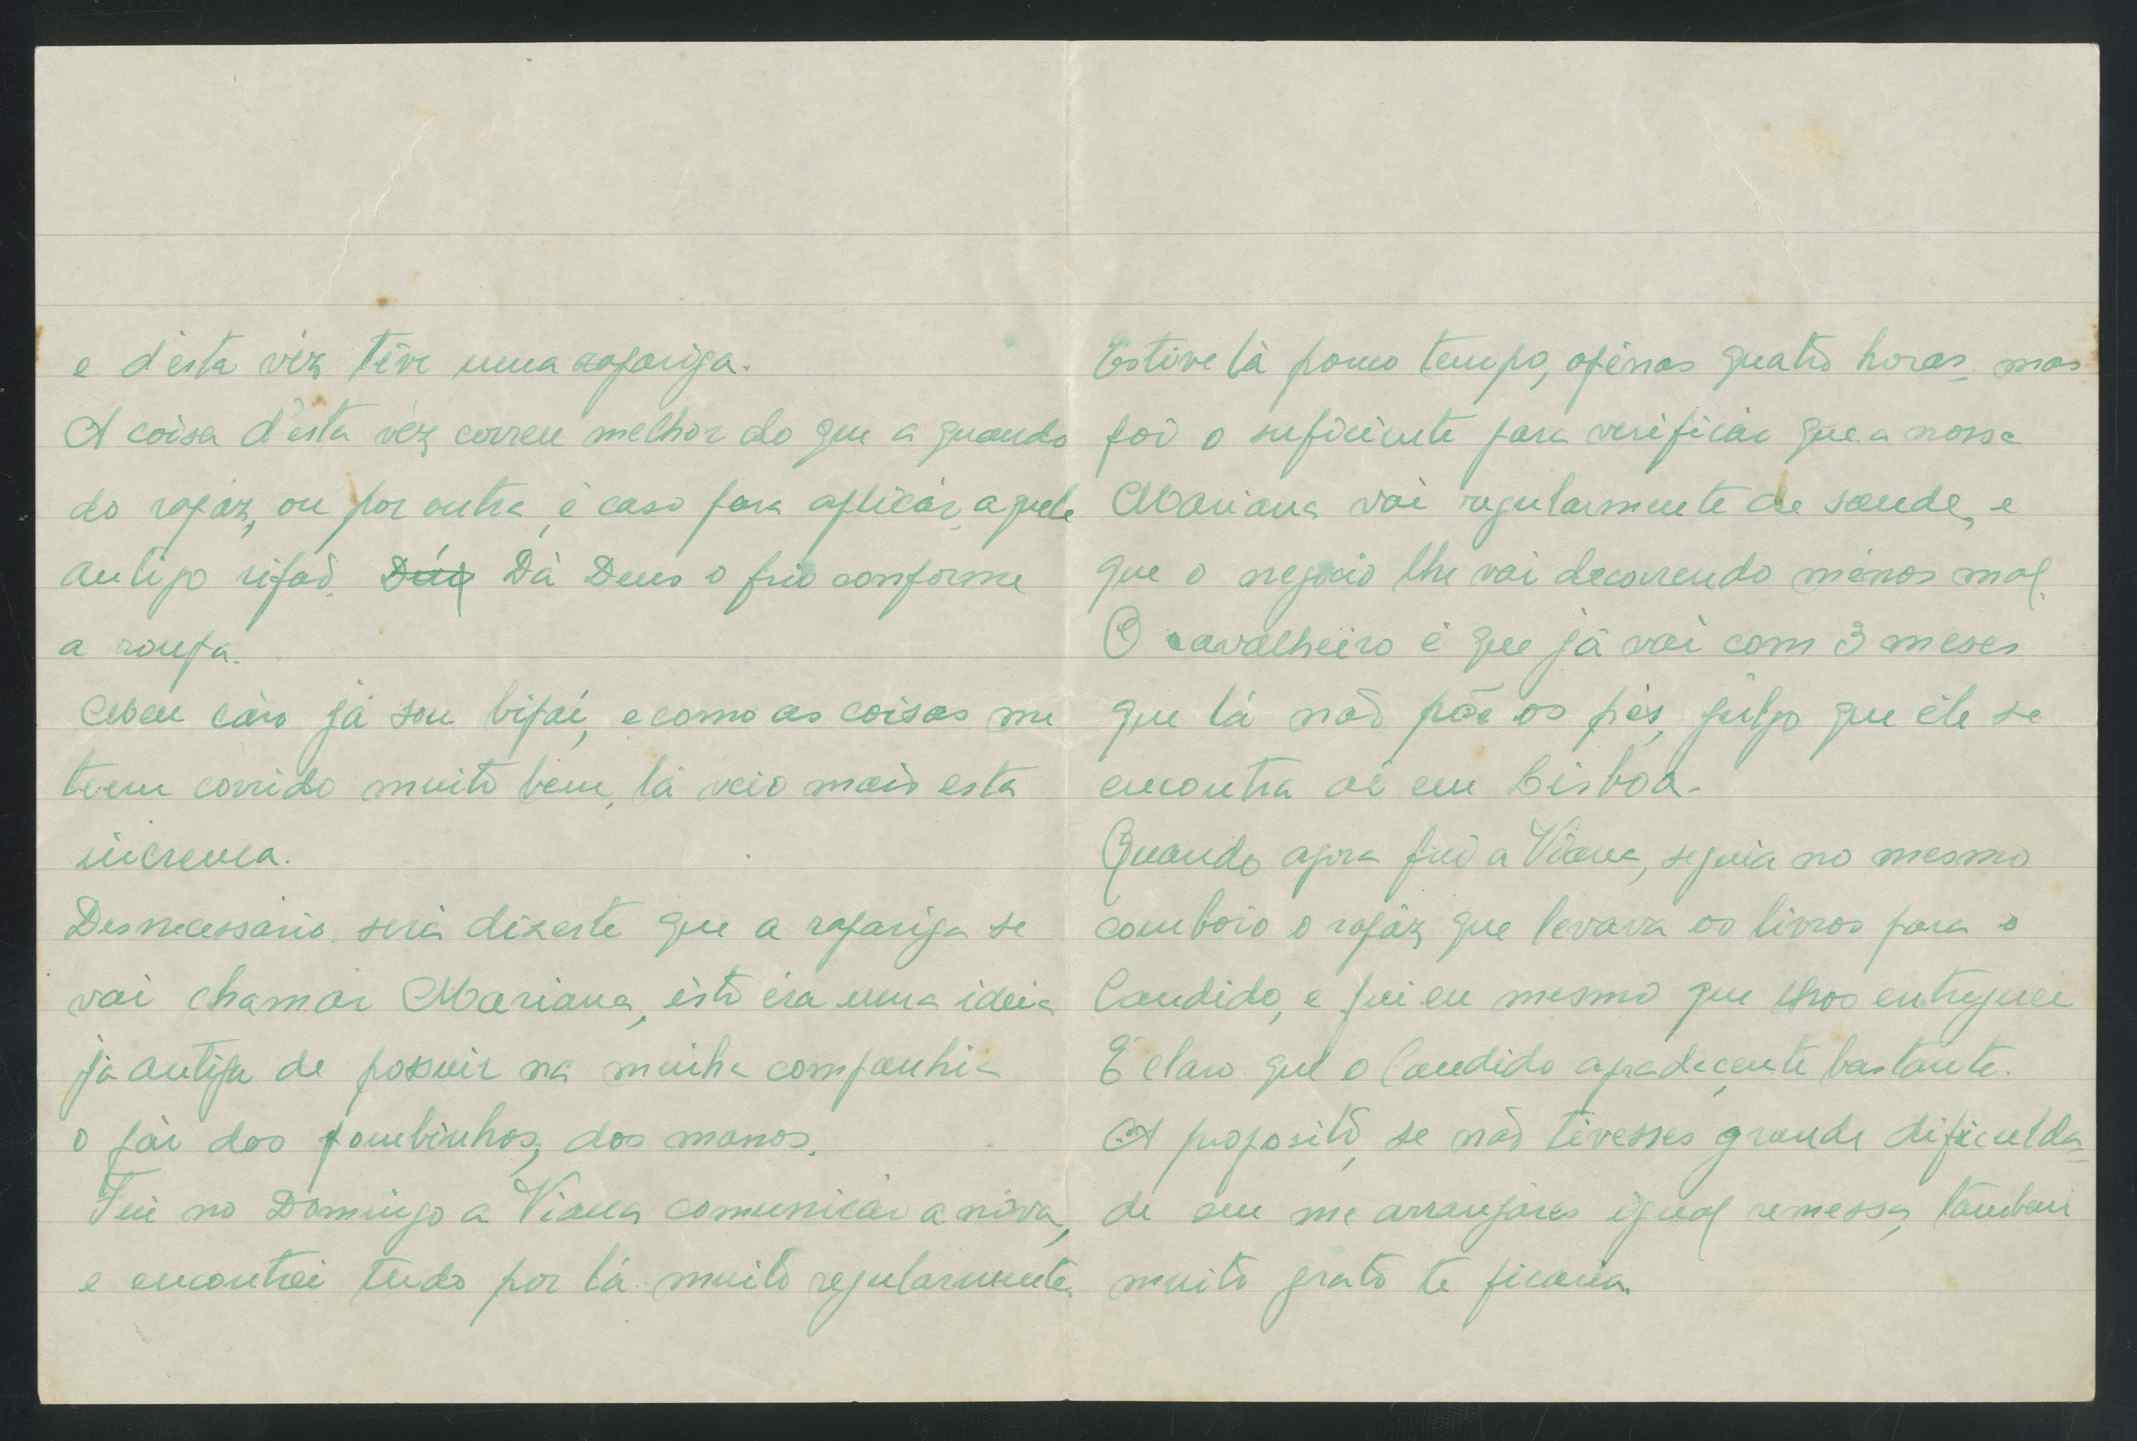 e d'esta véz têve uma rapariga.
A coisa d'esta véz correu melhor do que a quando
do rapáz, ou por outra, é caso para aplicár aquele
antigo rifaõ. Dá Deus o frio conforme
a roupa.
Meu cáro já sou bipai, e como as coisas me
teem corrido muito bem, lá veio mais esta
increnca.
Desnecessário será dizerte que a rapariga se
vai chamár Mariana, isto éra uma ideia
já antiga de possuir na minha companhia
o pár dos pombinhos, dos manos.
Fui no Domingo a Viana comunicár a nóva,
e encontrei tudo por lá muito regularmente.
Estive lá pouco tempo, apénas quatro horas, mas
foi o suficiente para verificár que a nossa
Mariana vai regularmente de saude, e
que o negócio lhe vai decorrendo ménos mal.
O cavalheiro é que já vai com 3 meses
que lá naõ põe os pés, julgo que êle se
encontra aí em Lisboa.
Quando agora fui a Viana, seguia no mesmo
comboio o rapáz que levava os livros para o
Candido, e fui eu mesmo que lhos entreguei
É claro que o Candido agradeçeute bastante.
A proposito, se naõ tivesses grande dificulda-
de em me arranjáres igual remessa, tambem
muito grato te ficaria.